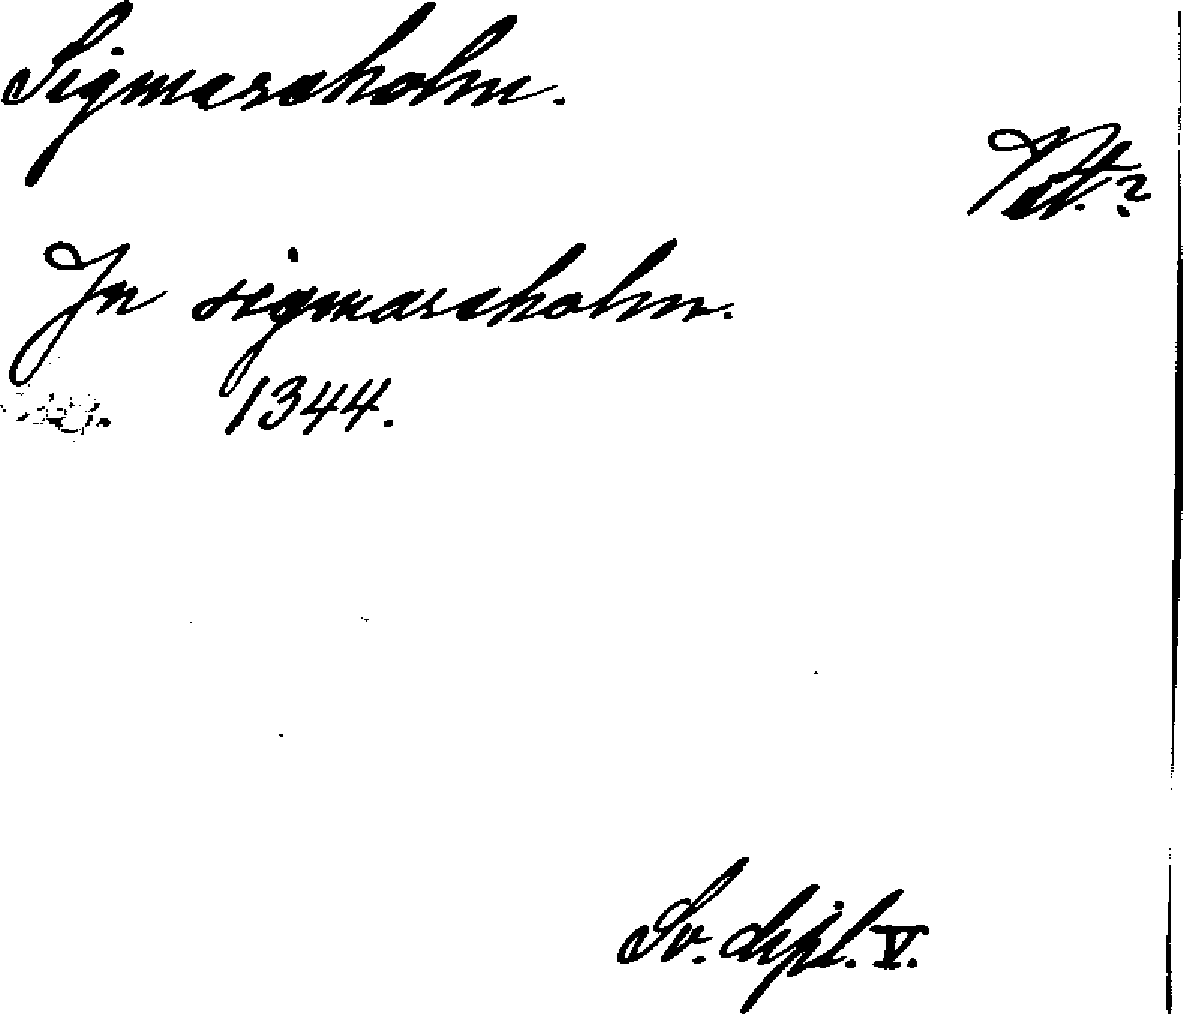 Sigmarsholm.
Vst.?
Jn sigmarsholm.
1344.
Sv. dipl. V.